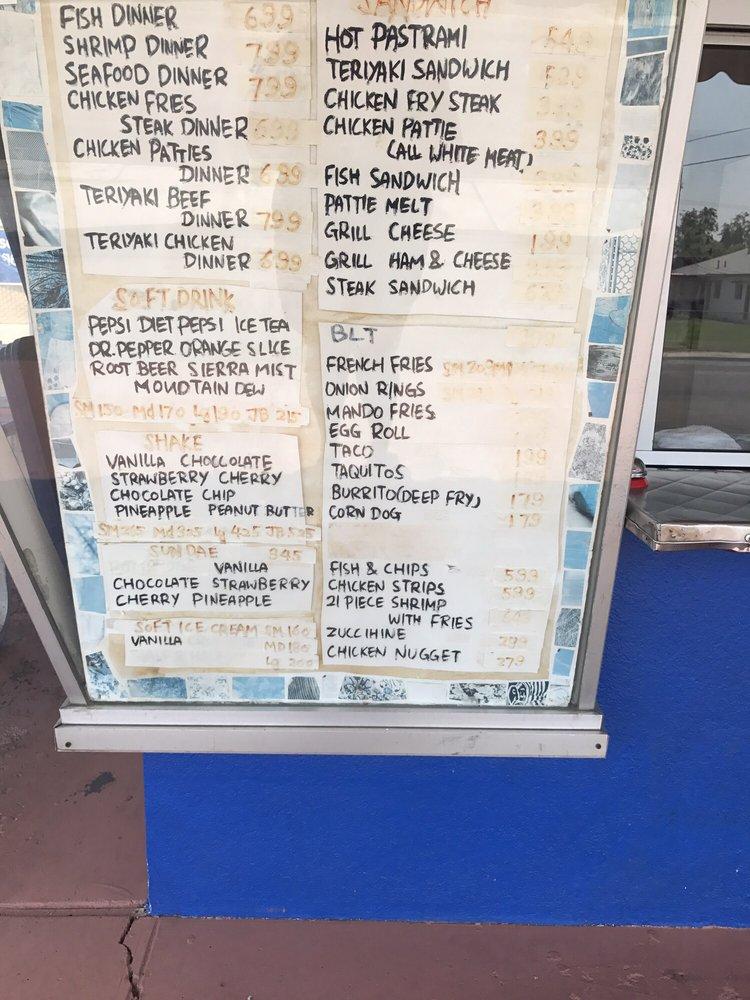 FISH DINNER 699
SHRIMP DINNER 799
SEAFOOD DINNER 799
CHICKEN FRIES
STEAK DINNER 699
CHICKEN PATTIES
DINNER 699
TERIYAKI BEEF
DINNER 799
TERIYAKI CHICKEN
DINNER 699
SOFT DRINK
PEPSI DIET PEPSI ICE TEA
DR. PEPPER ORANGE SLICE
ROOT BEER SIERRA MIST
MOUDTAIN DEW
SM 150 Md 170 Lg 190 JB 215
SHAKE
VANILLA CHOCCOLATE
STRAWBERRY CHERRY
CHOCOLATE CHIP
PINEAPPLE PEANUT BUTTER
SM 265 Md 305 lg 425 JB 525
SUNDAE 345
VANILLA
CHOCOLATE STRAWBERRY
CHERRY PINEAPPLE
SOFT ICE CREAM SM 160
VANILLA MD 180
Lg 200
SANDWICH
HOT PASTRAMI 549
TERIYAKI SANDWICH
CHICKEN FRY STEAK
CHICKEN PATTIE 399
(ALL WHITE MEAT)
FISH SANDWICH
PATTIE MELT
GRILL CHEESE 199
GRILL HAM & CHEESE
STEAK SANDWICH
BLT
FRENCH FRIES
ONION RINGS
MANDO FRIES
EGG ROLL
TACO 199
TAQUITOS
BURRITO(DEEP FRY) 179
CORN DOG 179
FISH & CHIPS 599
CHICKEN STRIPS 599
21 PIECE SHRIMP
WITH FRIES
ZUCCIHINE 299
CHICKEN NUGGET 279